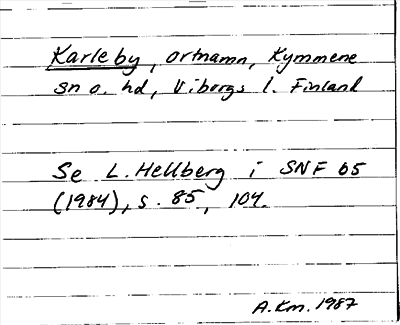 Karleby, ortnamn, Kymmene
sn o. hd, Viborgs l. Finland
Se L. Hellberg i SNF 65
(1984), s. 85, 104.
A.Km. 1987